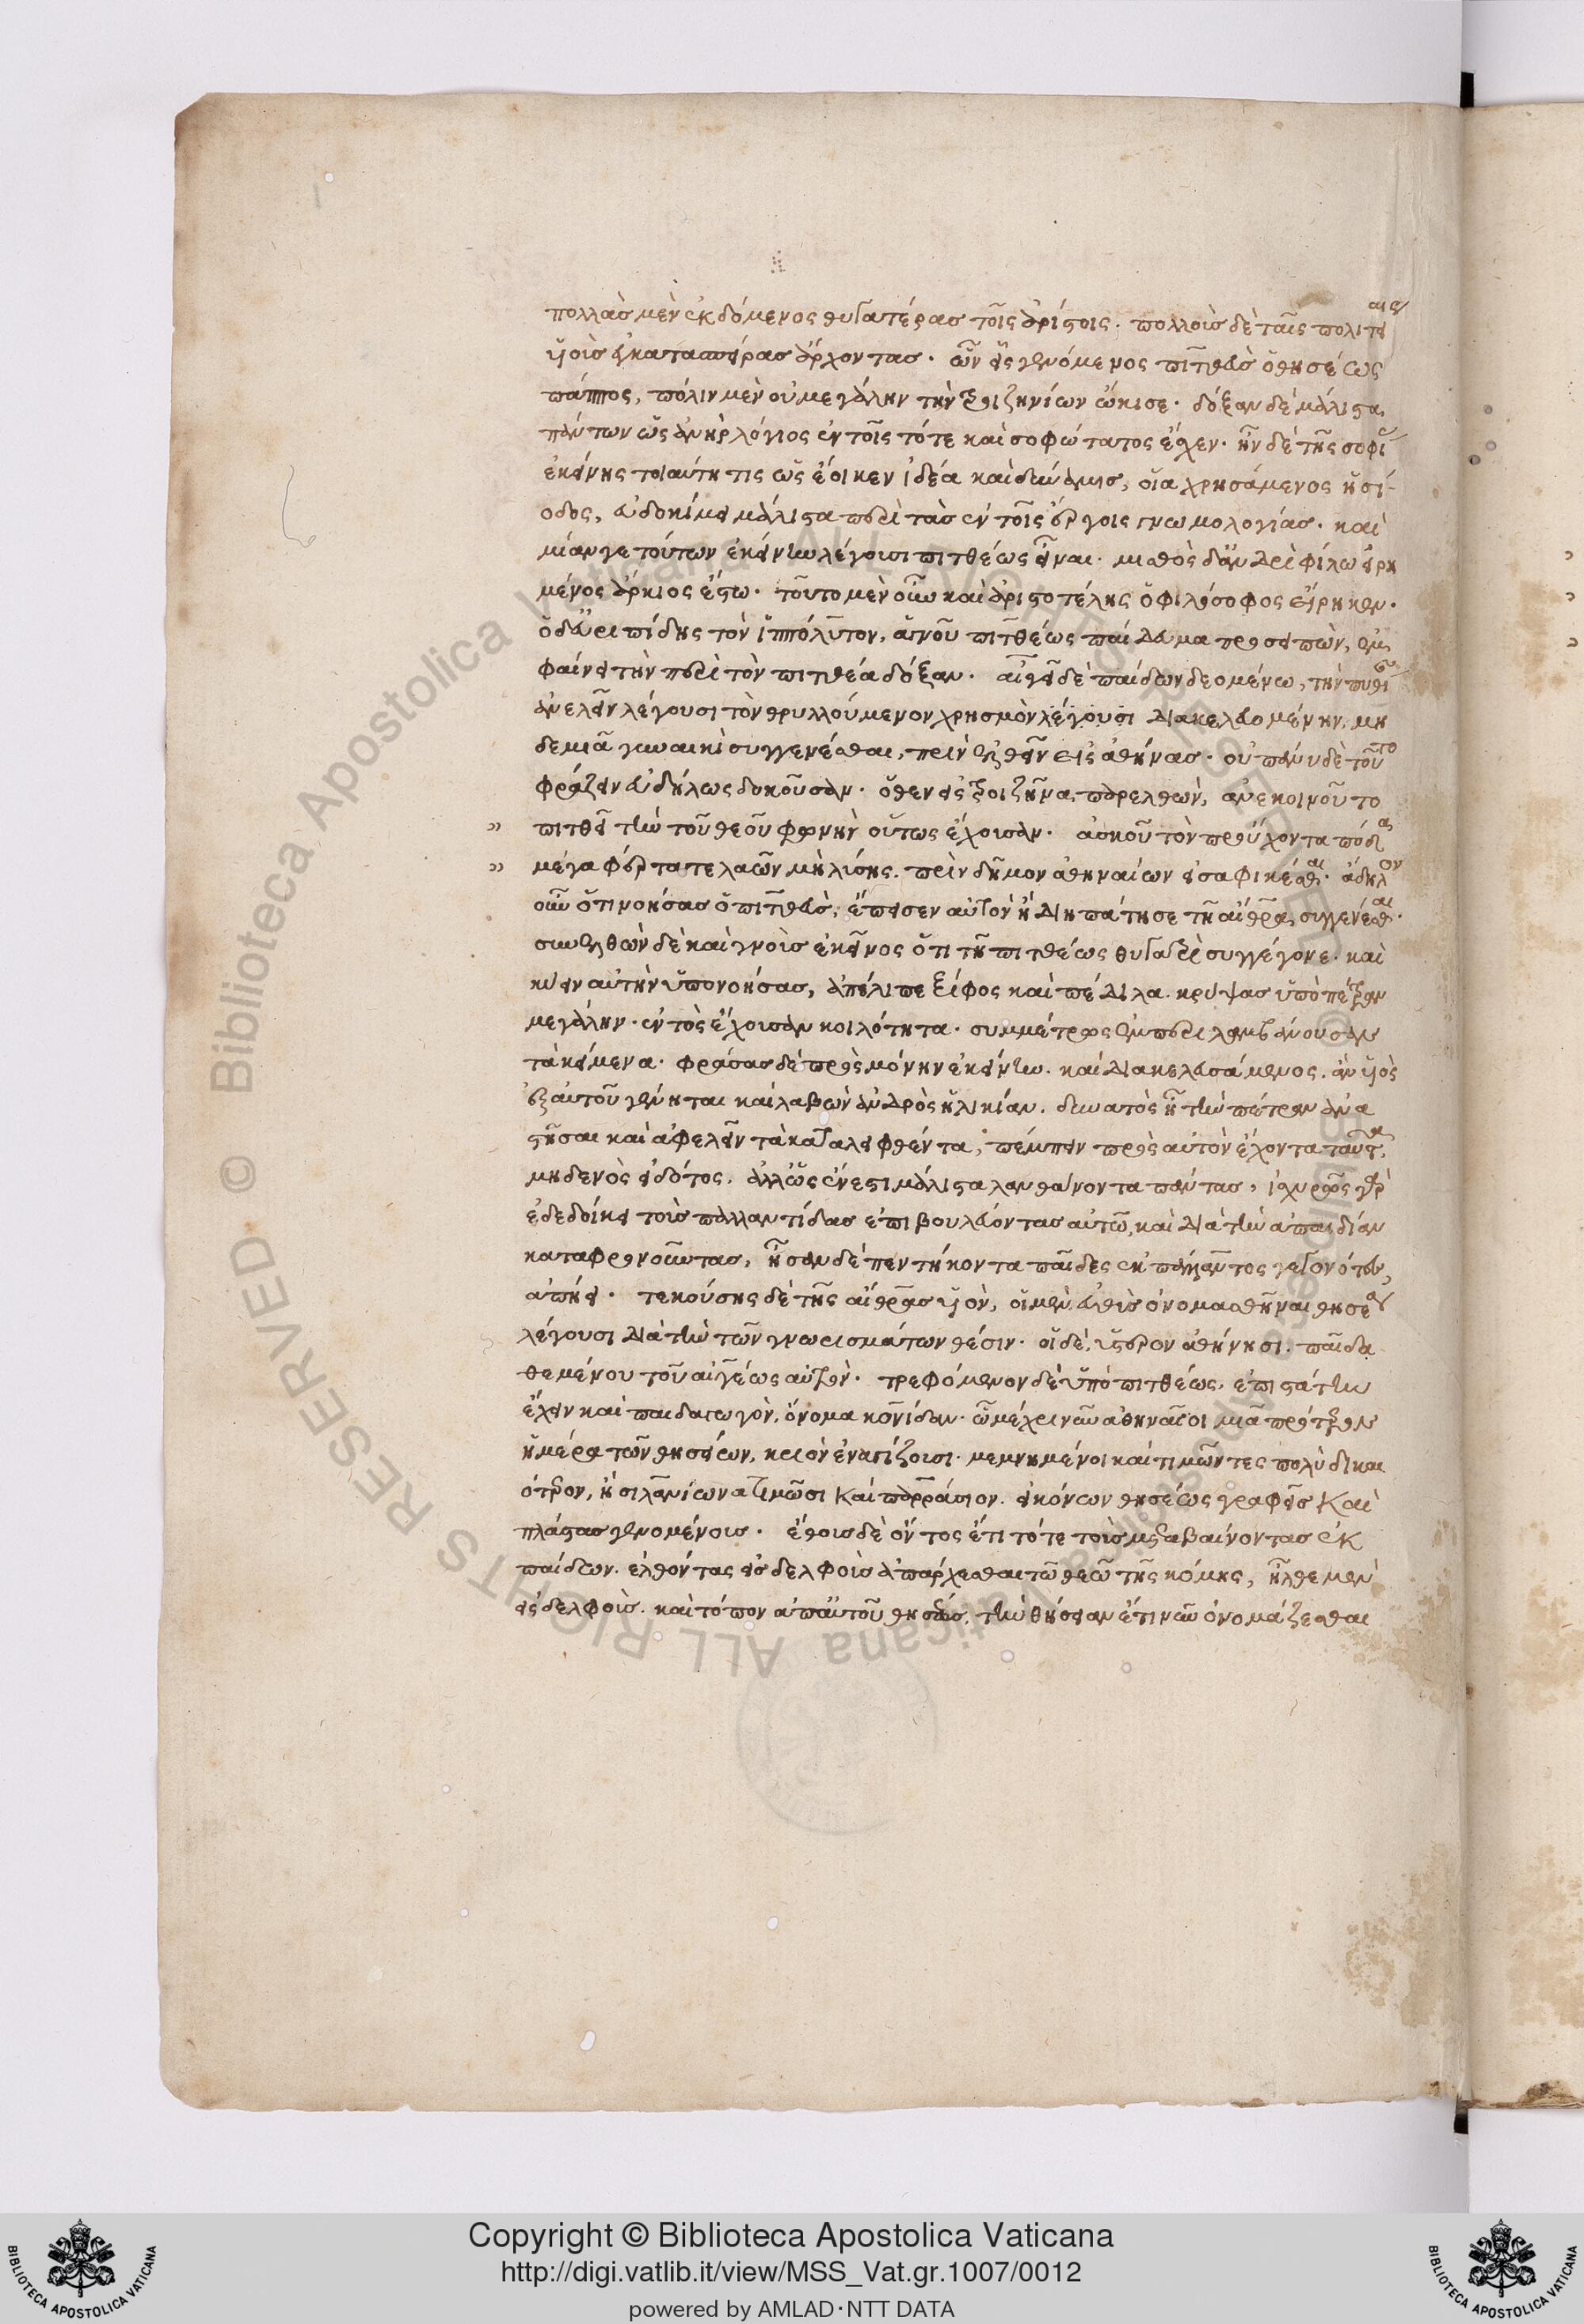 πολλὰσ μὲν ἐκδόμενος θυγατέρασ τοῖς ἀρίστοις. πολλοὺσ δὲ ταῖς πολιτείαις
υἱοὺσ ἐγκατασπείρασ ἄρχοντασ. ὧν εἷς γενόμενος πιτθεὺσ ὁ θησέως
πάππος, πόλιν μὲν οὐ μεγάλην τὴν τροιζηνίων ὤκισε. δόξαν δὲ μάλιστα
πάντων ὡς ἀνὴρ λόγιος ἐν τοῖς τότε καὶ σοφώτατος ἔσχεν. ἦν δὲ τῆς σοφί
ἐκείνης τοιαύτη τις ὡς ἔοικεν ἰδέα καὶ δύναμισ, οἵα χρησάμενος ἡσί-
οδος, εὐδοκίμει μάλιστα περὶ τὰσ ἐν τοῖς ἔργοις γνωμολογίασ. καὶ
μίαν γε τούτων ἐκείνην λέγουσι πιτθέως εἶναι. μισθὸς δ' ἀνδρὶ φίλω εἰρη
μένος ἄρκιος ἔστω. τοῦτο μὲν οὖν καὶ ἀριστοτέλης ὁ φιλόσοφος εἴρηκεν.
ὁ δ' εὐριπίδης τὸν ἱππόλυτον, ἁγνοῦ πιτθέως παίδευμα προσειπὼν, ἐμ
φαίνει τὴν περὶ τὸν πιτθέα δόξαν. αἰγεῖ δὲ παίδων δεομένω, τὴν πυθίαν
ἀνελεῖν λέγουσι τὸν θρυλλούμενον χρησμὸν λέγουσι διακελευομένην, μη
δεμιᾶ γυναικὶ συγγενέσθαι, πρὶν ἐλθεῖν εἰς ἀθήνασ. οὐ πάνυ δὲ τοῦτο
φράζειν εὐδήλως δοκοῦσαν. ὅθεν εἰς τροιζῆνα παρελθὼν, ἀνεκοινοῦτο
» πιτθεῖ τὴν τοῦ θεοῦ φωνὴν οὕτως ἔχουσαν. ἀσκοῦ τὸν προὔχοντα πόδα
» μέγα φέρτατε λαῶν μὴ λύσης. πρὶν δῆμον ἀθηναίων εἰσαφικέσθαι. ἄδηλον
οὖν ὅτι νοήσασ ὁ πιτθεὺσ, ἔπεισεν αὐτὸν ἢ διηπάτησε τῆ αἴθρα συγγενέσθαι.
συνελθὼν δὲ καὶ γνοὺσ ἐκεῖνος ὅτι τῆ πιτθέως θυγατρὶ συγγέγονε. καὶ
κύειν αὐτὴν ὑπονοήσας, ἀπέλιπε ξίφος καὶ πέδιλα. κρύψασ ὑπὸ πέτραν
μεγάλην. ἐντὸς ἔχουσαν κοιλότητα. συμμέτρως ἐμπεριλαμβάνουσαν
τὰ κείμενα. φράσασ δὲ πρὸς μόνην ἐκείνην. καὶ διακελευσάμενος. ἂν υἱὸς
ἐξ αὐτοῦ γένηται καὶ λαβὼν ἀνδρὸς ἡλικίαν. δυνατὸς ἦ τὴν πέτραν ἀνα
στῆσαι καὶ ἀφελεῖν τὰ καταλειφθέντα, πέμπειν πρὸς αὐτὸν ἔχοντα ταῦτα.
μηδενὸς εἰδότος. ἀλλ' ὡς ἔνεστι μάλιστα λανθάνοντα πάντασ, ἰσχυρῶς γὰρ
ἐδεδοίκει τοὺσ παλλαντίδασ ἐπιβουλεύοντασ αὐτῶ, καὶ διὰ τὴν ἀπαιδίαν
καταφρονοῦντασ, ἦσαν δὲ πεντήκοντα παῖδες ἐκ πάλλαντος γεγονότες,
ἀπήει. τεκούσης δὲ τῆς αἴθρασ υἱὸν, οἱ μὲν εὐθὺσ ὀνομασθῆναι θησέα
λέγουσι διὰ τὴν τῶν γνωρισμάτων θέσιν. οἱ δὲ, ὕστερον ἀθήνησι. παῖδα
θεμένου τοῦ αἰγέως αὐτὸν. τρεφόμενον δὲ ὑπὸ πιτθέως. ἐπιστάτην
ἔχειν καὶ παιδαγωγὸν, ὄνομα κοννίδαν. ὧ μέχρι νῦν ἀθηναῖοι μιᾶ πρότερον
ἡμέρα τῶν θησείων, κριὸν ἐναγίζουσι. μεμνημένοι καὶ τιμῶντες πολὺ δικαι
ότερον, ἢ σιλανίωνα τιμῶσι καὶ παρράσιον. εἰκόνων θησέως γραφεῖσ καὶ
πλάστασ γενομένουσ. ἔθουσ δὲ ὄντος ἔτι τότε τοὺσ μεταβαίνοντασ ἐκ
παίδων. ἐλθόντας εἰσ δελφοὺσ ἀπάρχεσθαι τῶ θεῶ τῆς κόμης, ἦλθε μὲν
εἰς δελφοὺσ. καὶ τόπον ἀπ' αὐτοῦ θησέωσ. τὴν θησείαν ἔτι νῦν ὀνομάζεσθαι
Biblioteca Apostolica Vaticana ALL RIGHTS RESERVED ©
Copyright © Biblioteca Apostolica Vaticana
http://digi.vatlib.it/view/MSS_Vat.gr.1007/0012
powered by AMLAD·NTT DATA
BIBLIOTECA APOSTOLICA VATICANA
BIBLIOTECA APOSTOLICA VATICANA